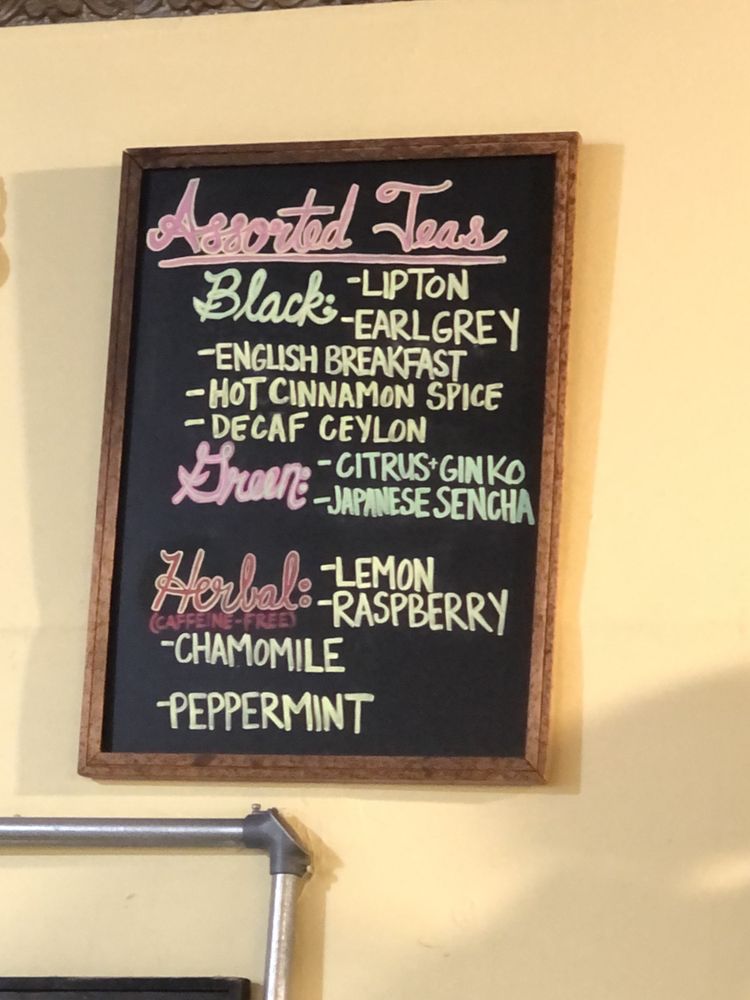 Assorted Teas
Black: -LIPTON
-EARL GREY
-ENGLISH BREAKFAST
-HOT CINNAMON SPICE
-DECAF CEYLON
Green: -CITRUS+GINKO
-JAPANESE SENCHA
Herbal: -LEMON
(CAFFEINE-FREE) -RASPBERRY
-CHAMOMILE
-PEPPERMINT